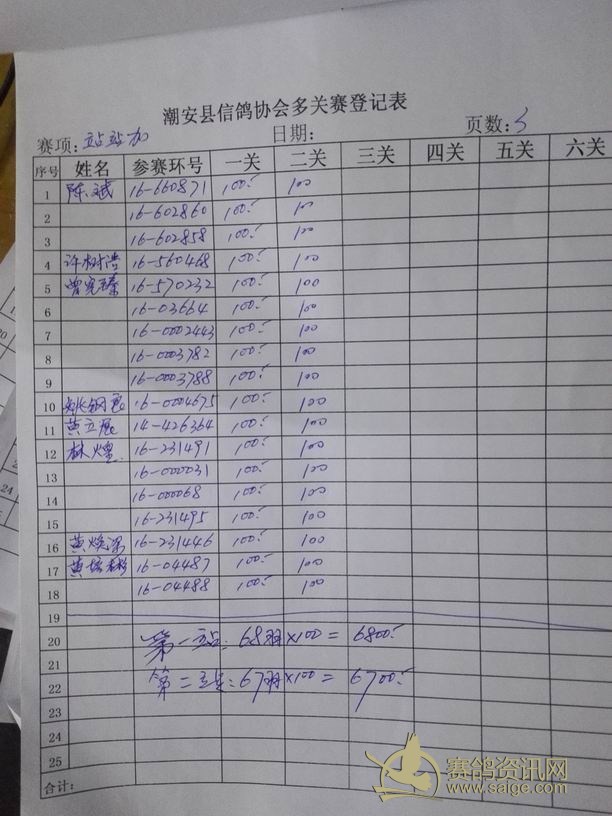 潮安县信鸽协会多关赛登记表
赛项: 站站加 日期: 页数: 3
序号 姓名 参赛环号 一关 二关 三关 四关 五关 六关
1 陈斌 16-660871 100.- 100
2 16-602860 100.- 100
3 16-602858 100.- 100
4 许树浩 16-560468 100.- 100
5 曾宪 16-570232 100.- 100
6 16-03664 100.- 100
7 16-0002443 100.- 100
8 16-0003782 100.- 100
9 16-0003788 100.- 100
10 姚钢 16-0004675 100.- 100
11 黄立展 14-426364 100.- 100
12 林煌 16-231491 100.- 100
13 16-000031 100.- 100
14 16-000068 100.- 100
15 16-231495 100.- 100
16 黄焕 16-231446 100.- 100
17 黄培彬 16-04487 100.- 100
18 16-04488 100.- 100
19
20 第一站: 68羽×100= 6800.-
21
22 第二站: 67羽×100= 6700.-
23
24
25
合计:
赛鸽资讯网
www.saige.com